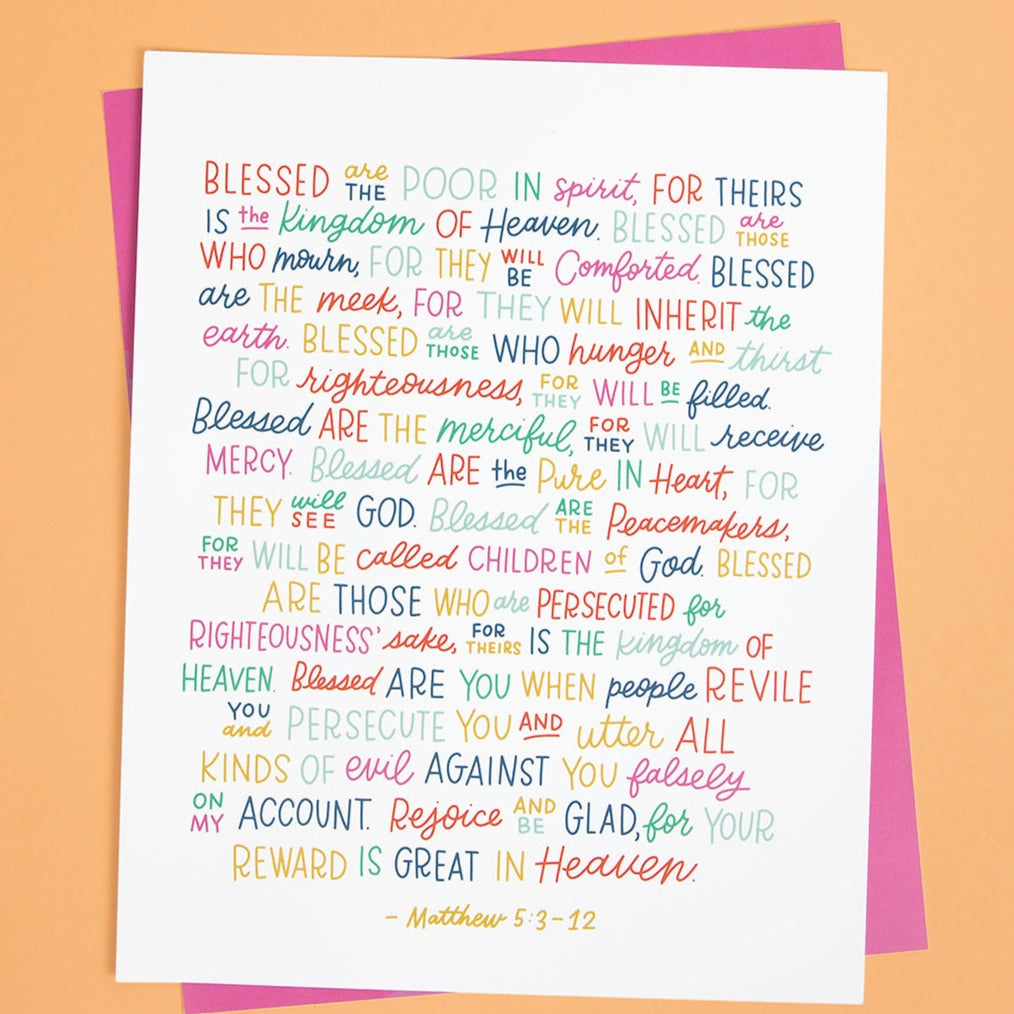 BLESSED are THE POOR IN spirit, FOR THEIRS
IS the Kingdom OF Heaven. BLESSED are THOSE
WHO mourn, FOR THEY WILL BE Comforted. BLESSED
are THE meek, FOR THEY WILL INHERIT the
earth. BLESSED are THOSE WHO hunger AND thirst
FOR righteousness, FOR THEY WILL BE filled.
Blessed ARE THE merciful, FOR THEY WILL receive
MERCY. Blessed ARE the Pure IN Heart, FOR
THEY will SEE GOD. Blessed ARE THE Peacemakers,
FOR THEY WILL BE called CHILDREN of God. BLESSED
ARE THOSE WHO are PERSECUTED for
RIGHTEOUSNESS' sake, FOR THEIRS IS THE kingdom OF
HEAVEN. Blessed ARE YOU WHEN people REVILE
YOU and PERSECUTE YOU AND utter ALL
KINDS OF evil AGAINST YOU falsely
ON MY ACCOUNT. Rejoice AND BE GLAD, for YOUR
REWARD IS GREAT IN Heaven.
- Matthew 5:3-12